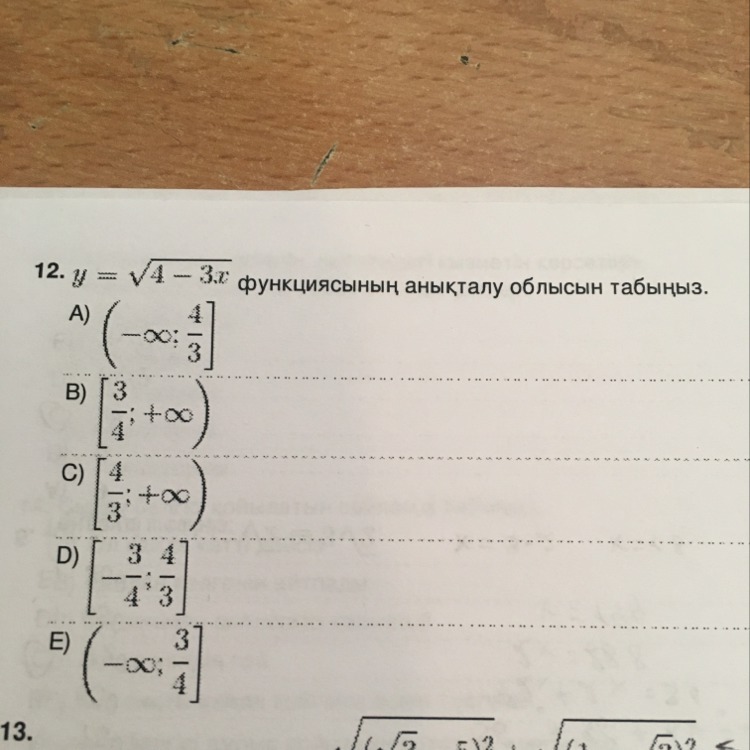 12. y = √(4 − 3x) функциясының анықталу облысын табыңыз.
A) (−∞; 4/3]
B) [3/4; +∞)
C) [4/3; +∞)
D) [−3/4; 4/3]
E) (−∞; 3/4]
13.